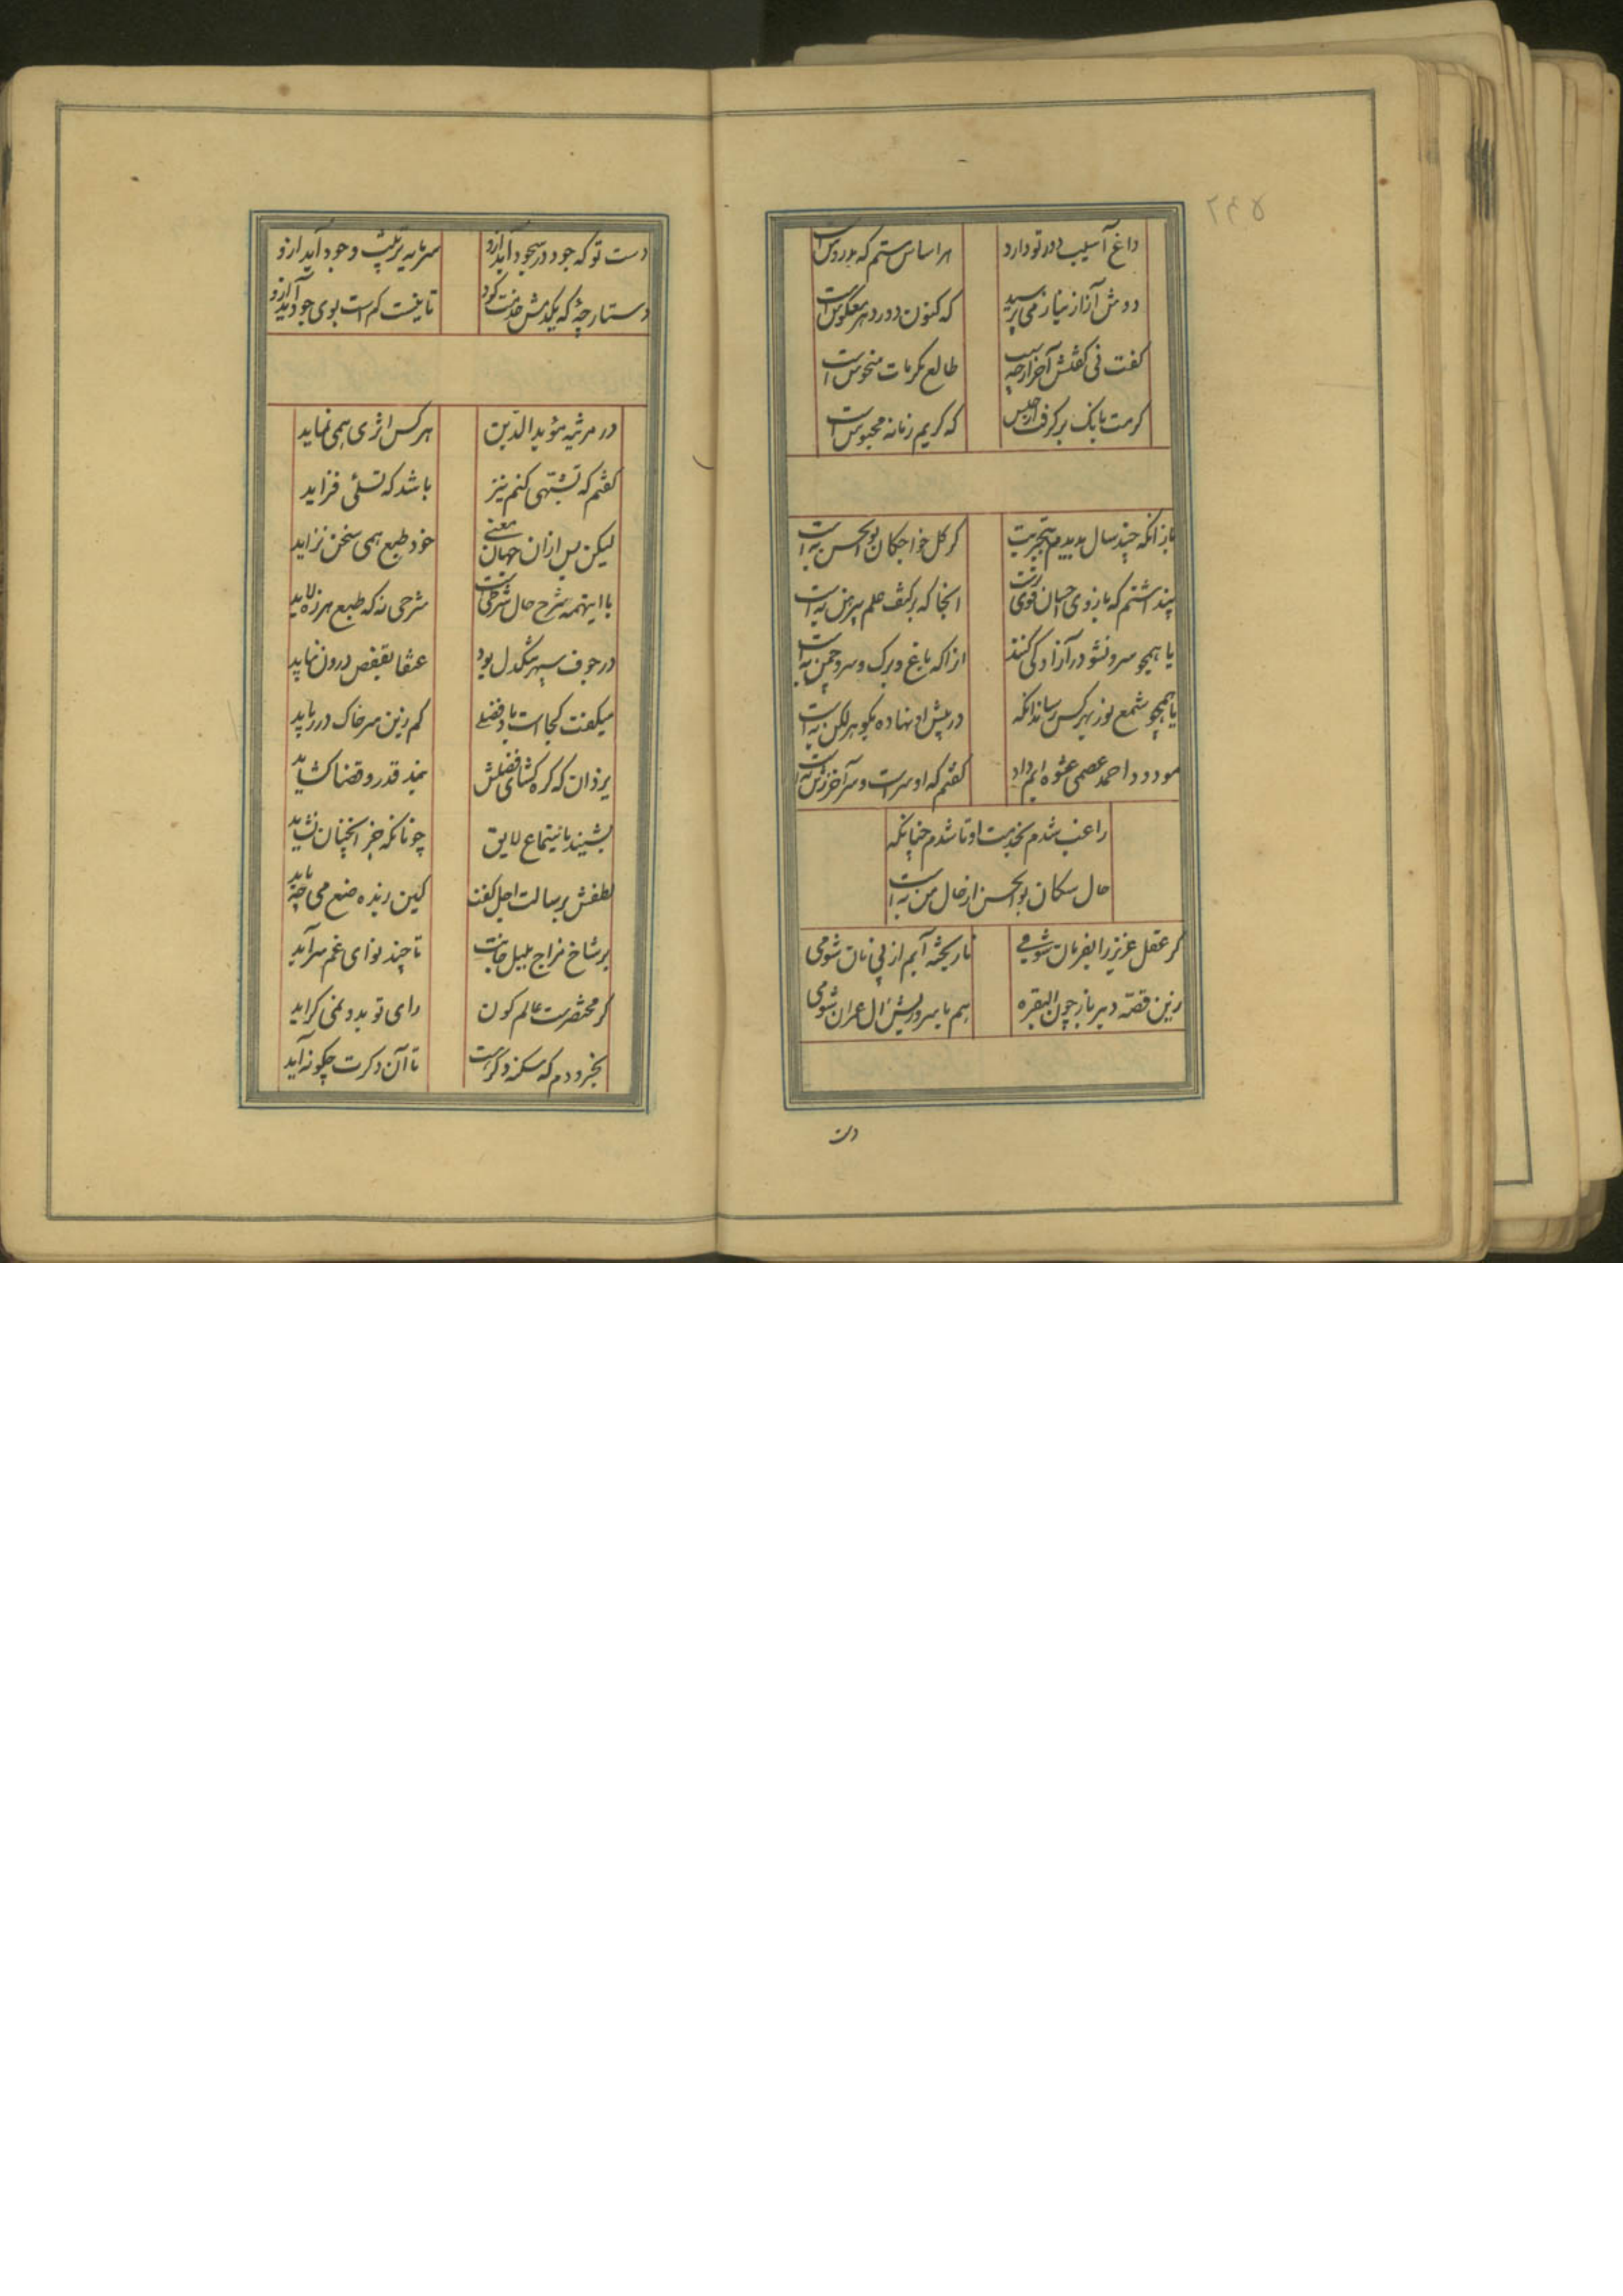 ۲۴۵
داغ آسیب دور تو دارد هر اساس ستم که مدروس است
دوش آزاز نیاز می پرسید که کنون دور دهر معکوس است
گفت نی گفتش آخر از چه سبب طالع مکرمات منحوس است
کرمت بانک بر گرفت از حبس که کریم زمانه محبوس است
باز آنکه چند سال بدیدم بتجربت کز کل خواجکان بوالحسن به است
پنداشتم که بازوی احسان قوی ترست انجا که بر کتف علم پیرهن به است
یا همچو سرو نشو در آزادگی کنند از آنکه باغ و برک و سرو چمن به است
یا همچو شمع نور بهر کس رساند آنکه در پیش او نهاده نکوهر لکن به است
مودود احمد عصمی عشوه ایم داد گفتم که او سرست و سر آخر ز تن به است
راغب شدم بخدمت او تا شدم چنانکه
حال سکان بوالحسن از حال من به است
گر عقل عزیز را بفرمان شومی نار یخته آیم از پی نان شومی
زین قصه دیر باز چون البقره هم با سر و ریش آل عمران شومی
دست
دست تو که جود در سجود آید ازو سرمایه ترتیب وجود آید ازو
دستارچهٔ که یکدمش خدمت کرد تا نیست کم است بوی جود آید ازو
در مرثیه مؤید الدین هر کس اثری همی نماید
گفتم که تشبهی کنم نیز باشد که تسلئی فزاید
لیکن پس ازان جهان معنی خود طبع همی سخن نزاید
با اینهمه شرح حال شرطیست شرحی نه که طبع هرزه لاید
در جوف سپهر تنگدل بود عنقا بقفص درون نپاید
میگفت کجاست باد فضلی کم زین سر خاک در رباید
یزدان که گره گشای فضلش بند قدر و قضا گشاید
بشنید باستماع لایق چونانکه جز آنچنان نشاید
لطفش برسالت اجل گفت کین زبده صنع می چه باید
بر شاخ مزاج بلبل جانت تا چند نوای غم سراید
گر مختصرست عالم کون رای تو بدو نمی گراید
بخرو دم که سکنه دگر است تا آن دگرت چگونه آید